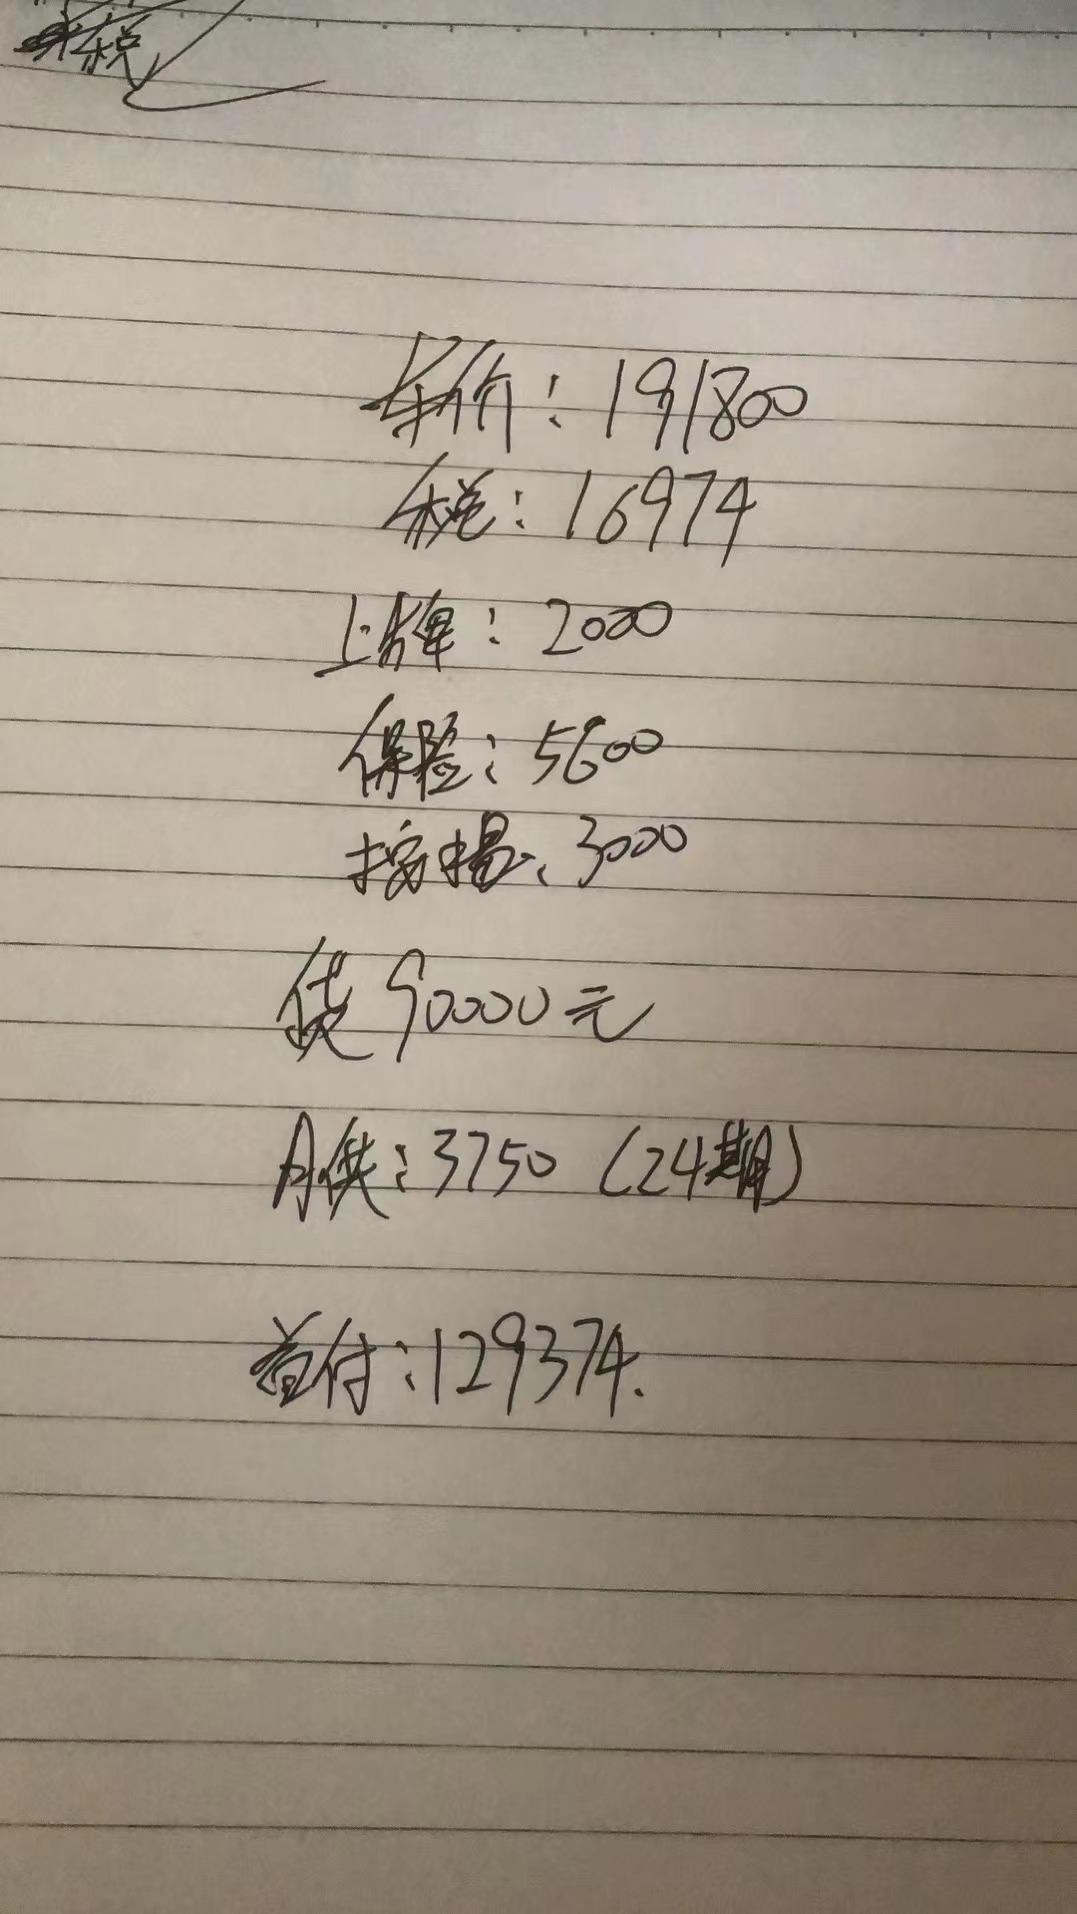 税
车价：191800
税：16974
上牌：2000
保险：5600
按揭：3000
贷90000元
月供：3750（24期）
首付：129374.